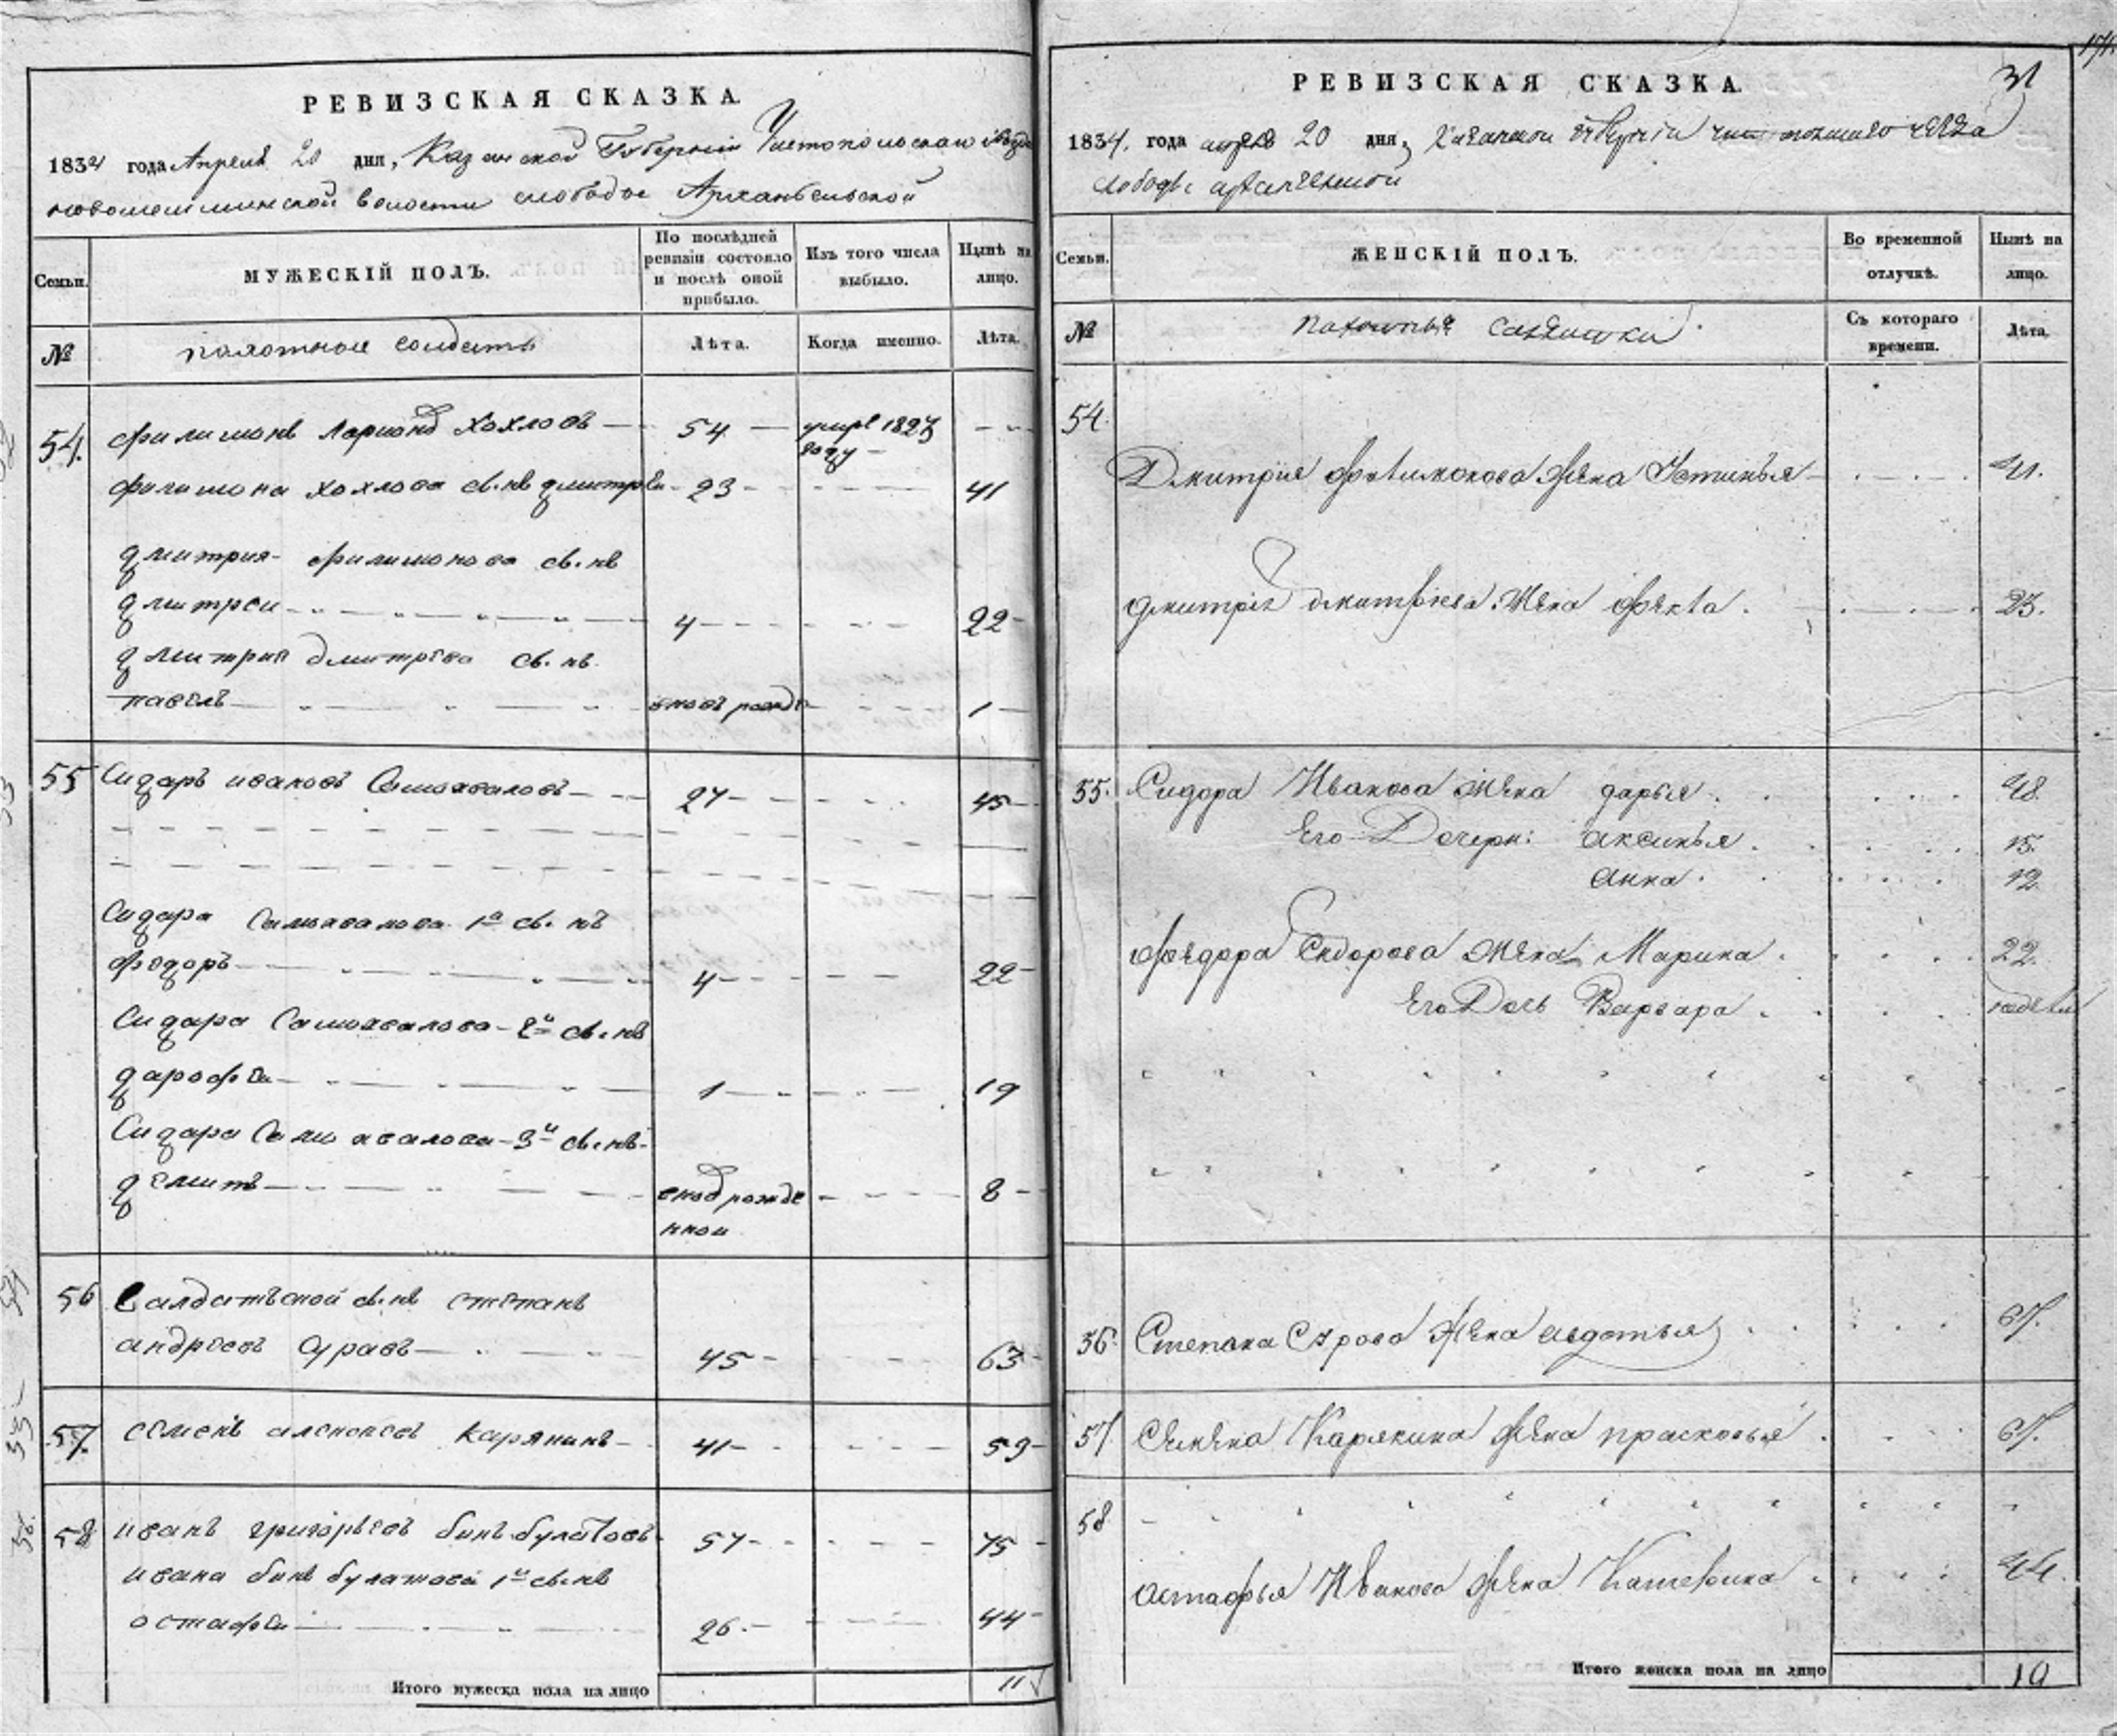 РЕВИЗСКАЯ СКАЗКА.
1834 года Апреля 20 дня, Казанской Губернии Чистопольскаго уезда
новошешминской волости слободы Архангельской
Семьи.
МУЖЕСКІЙ ПОЛЪ.
По послѣдней ревизіи состояло и послѣ оной прибыло.
Изъ того числа выбыло.
Нынѣ на лицо.
№
пахотные солдаты
Лѣта.
Когда именно.
Лѣта.
54. филимонъ Ларионовъ Хохловъ 54 умре 1827 году
филимона хохлова сынъ дмитреи 23 41
дмитрия филимонова сынъ
дмитреи 4 22
дмитрия дмитрева сынъ
павелъ вновъ рожде 1
55 Сидаръ ивановъ Самохваловъ 27 45
Сидара Самохвалова 1й сынъ
федоръ 4 22
Сидара Самохвалова 2й сынъ
дарофеи 1 19
Сидара Самохвалова 3й сынъ
демитъ вновь рожде нной 8
56 Салдатской сынъ степанъ
андреевъ Суравъ 45 63
57. семенъ алексеевъ карякинъ 41 59
58 иванъ григорьевъ бинъ булатовъ 57 75
ивана бинъ булатова 1й сынъ
остафеи 26 44
Итого мужеска пола на лицо 11
171.
РЕВИЗСКАЯ СКАЗКА.
31
1834. года апреля 20 дня, Казанской губерніи чистопольскаго уезда
слободы архангельской
Семьи.
ЖЕНСКІЙ ПОЛЪ.
Во временной отлучкѣ.
Нынѣ на лицо.
№
пахотныя салдатки
Съ котораго времени.
Лѣта.
54.
Дмитрия Филимонова жена Устинья 41.
дмитрія дмитріева жена Фекла 23.
55. Сидора Иванова жена дарья 48.
Его Дочери: аксинья 15.
анна 12
Феодора Сидорова жена Марина 22.
Его Дочь Варвара недели
56. Степана Сурова жена авдотья 67.
57 Семена Карякина жена прасковья 67.
58
астафья Иванова жена Катерина 44.
Итого женска пола на лицо 10